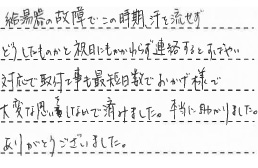 給湯器の故障でこの時期、汗を流せず
どうしたものかと祝日にもかかわらず連絡するとすばやい
対応で取付工事も最短日数でおかげ様で
大変な思いをしないで済みました。本当に助かりました。
ありがとうございました。